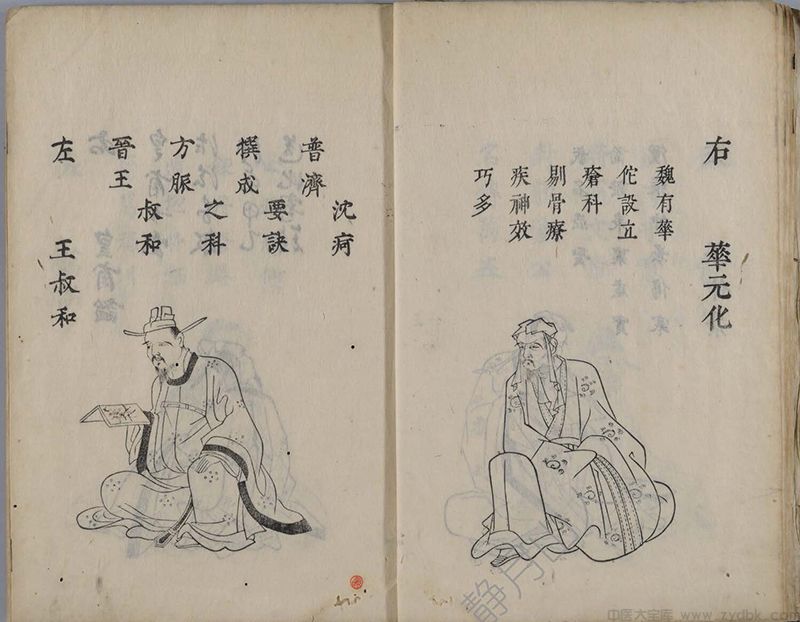 右 華元化
魏有華
佗設立
瘡科
剔骨療
疾神效
巧多
左 王叔和
晉王
叔和
方脈
之科
撰成
要訣
普濟
沈疴
中医大宝库 www.zydbk.com